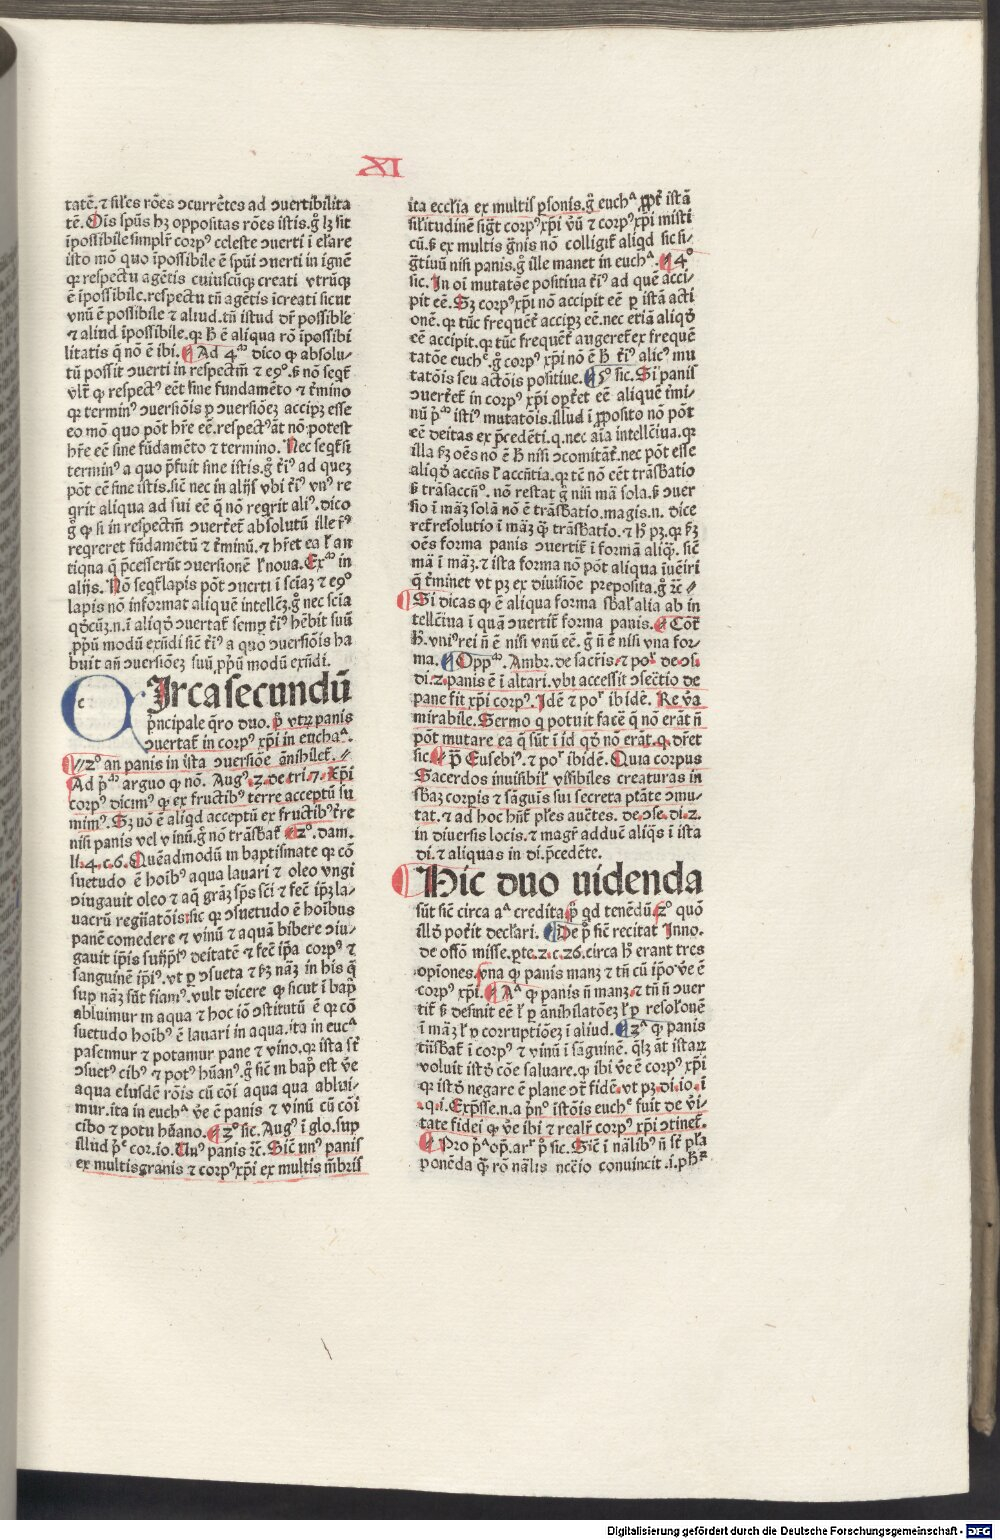 XI
tatē. ⁊ siles rōes ɔcurrētes ad ɔuertibilita
tē. Oīs spūs hꝫ oppositas rōes istis. g̊ lꝫ sit
īpossibile simplr̄ corpꝰ celeste ɔuerti ī elare
isto mō quo īpossibile ē spūi ɔuerti in ignē
qꝛ respectu agētis cuiuscūqꝫ creati vtrūqꝫ
ē īpossibile. respectu tn̄ agētis īcreati sicut
vnū ē possibile ⁊ aliud. tn̄ istud dr̄ possibile
⁊ aliud īpossibile. qꝛ h̄ ē aliqua rō īpossibi
litatis q̄ nō ē ibi. Ad 4ᵐ dico ꝙ absolu⸗
tū possit ɔuerti in respectīn ⁊ eꝯ. sꝫ nō seqt̄
vlt̄ ꝙ respectꝰ eēt sine fundamēto ⁊ t̄mino
qꝛ terminꝰ ɔuersiōis ꝑ ɔuersiōeꝫ accipꝫ esse
eo mō quo pōt hr̄e eē. respectꝰ at̄ nō potest
hr̄e eē sine fūdamēto ⁊ termino. Nec seqt̄ si
terminꝰ a quo p̄fuit sine istis. g̊ t̄iꝰ ad queꝫ
pōt eē sine istis. sic̄ nec in alijs vbi t̄iꝰ vnꝰ re
q̄rit aliqua ad sui eē q̄ nō req̄rit aliꝰ. dico
g̊ ꝙ si in respectīn ɔuertet̄ absolutū ille t̄ꝰ
req̄reret fūdamētū ⁊ t̄minū. ⁊ hr̄et ea l̄ an
tiqua q̄ p̄cesserūt ɔuersionē l̄ noua. Exᵐ in
alijs. Nō seqt̄ lapis pōt ɔuerti ī sciaꝫ ⁊ eꝯ
lapis nō informat aliquē intellcꝫ. g̊ nec scia
qd̄cūꝫ. n. ī aliqd̄ ɔuertat̄ semp̄ t̄iꝰ hēbit suū
ꝓpriū modū exn̄di sic̄ t̄iꝰ a quo ɔuersiōis ha
buit an̄ ɔuersiōeꝫ suū ꝓpriū modū exn̄di.
Q Irca secundū
p̄ncipale q̄ro duo. p̄ vtꝝ panis
ɔuertat̄ in corpꝰ xp̄i in euchaᵃ.
2° an panis in ista ɔuersiōe ānihilet̄.
Ad pᵐ arguo ꝙ nō. Augꝰ. 3. de tri. 7. Xp̄i
corpꝰ dicimꝰ ꝙ ex fructibꝰ terre acceptū su
mimꝰ. Sꝫ nō ē aliqd acceptū ex fructibꝰ t̄re
nisi panis vel vinū. g̊ nō trāsbat̄. 2°. dam.
li. 4. c. 6. Quēadmodū in baptismate qꝛ cō
suetudo ē hoībꝰ aqua lauari ⁊ oleo vngi
ɔiugauit oleo ⁊ aq̄ grāꝫ sp̄s sc̄i ⁊ fec̄ ip̄ꝫ la⸗
uacrū regn̄atōis. sic qꝛ ɔsuetudo ē hoībus
panē comedere ⁊ vinū ⁊ aquā bibere ɔiu⸗
gauit ip̄is suh̄p̄iꝰ deitatē ⁊ fec̄ ip̄a corpꝰ ⁊
sanguinē ip̄iꝰ. vt ꝑ ɔsueta ⁊ ẜꝫ nāꝫ in his q̄
sup nāꝫ sūt fiamꝰ. vult dicere ꝙ sicut ī bap̄
abluimur in aqua ⁊ hoc iō ɔstitutū ē qꝛ cō
suetudo hoībꝰ ē lauari in aqua. ita in eucᵃ
pascimur ⁊ potamur pane ⁊ vino. qꝛ ista st̄
ɔsuetꝰ cibꝰ ⁊ potꝰ hūanꝰ. g̊ sic̄ in bap̄ est v̄e
aqua eiusdē rōis cū cōi aqua qua ablui⸗
mur. ita in euchᵃ v̄e ē panis ⁊ vinū cū cōi
cibo ⁊ potu hūano. 3° sic. Augꝰ ī glo. sup
illud p̄ᵉ cor. io. Vnꝰ panis ⁊c̄. Sic̄ unꝰ panis
ex multis granis ⁊ corpꝰ xp̄i ex multis m̄bris
ita eccl̄ia ex multis ꝑsonis. g̊ euchᵃ ꝓpt̄ istā
similitudinē sig̊t corpꝰ xp̄i vn̄ ⁊ corpꝰ xp̄i misti
cū. sꝫ ex multis g̊nis nō colligit̄ aliqd sic si⸗
g̊tiuū nisi panis. g̊ ille manet in euchᵃ. 4°
sic. In oī mutatōe positiua t̄iꝰ ad quē acci⸗
pit eē. Sꝫ corpꝰ xp̄i nō accipit eē ꝑ istā acti
onē. qꝛ tūc frequēt̄ accipꝫ eē. nec etiā aliqd̄
eē accipit. qꝛ tūc frequēt̄ augeret̄ ex frequē
tatōe euchᵉ. g̊ corpꝰ xp̄i nō ē h̄ t̄iꝰ alicꝰ mu
tatōis seu actōis positiue. 5° sic. Si panis
ɔuertet̄ in corpꝰ xp̄i oꝑtet eē aliquē t̄mi⸗
nū pᵐ istiꝰ mutatōis. illud ī ꝓposito nō pōt
eē deitas ex p̄cedēti. q. nec aīa intellc̄iua. qꝛ
illa ẜꝫ oēs nō ē h̄ nisi ɔcomitāt̄. nec pōt esse
aliqd̄ accn̄s l̄ accn̄tia. qꝛ tē nō eēt trāsb̄atio
sꝫ trāsaccn̄°. nō restat g̊ nisi mā sola. sꝫ ɔuer
sio ī māꝫ solā nō ē trāsb̄atio. magis. n. dice
ret̄ resolutio ī māꝫ q̄ trāsb̄atio. ⁊ h̄ pꝫ. qꝛ ẜꝫ
oēs forma panis ɔuertit̄ ī formā aliq̄. sic̄
mā ī māꝫ. ⁊ ista forma nō pōt aliqua īueīri
q̄ t̄minet vt pꝫ ex diuisiōe preposita. g̊ ⁊c̄
Si dicas ꝙ ē aliqua forma sb̄al̄ alia ab in
tellc̄iua ī quā ɔuertit̄ forma panis. Cōt̄
h̄. vniꝰ rei n̄ ē nisi vnū eē. g̊ n̄ ē nisi vna for⸗
ma. Oppᵐ. Ambr. de sacr̄is. ⁊ poʳ de ɔs.
di. 2. panis ē ī altari. vbi accessit ɔsec̄tio de
pane fit xp̄i corpꝰ. Idē ⁊ poʳ ibidē. Re v̄a
mirabile. Sermo q̄ potuit facē q̄ nō erāt n̄
pōt mutare ea q̄ sūt ī id qd̄ nō erāt. q. dr̄et
sic. P̄ Eusebiꝰ. ⁊ poʳ ibidē. Quia corpus
Sacerdos inuisibil̄ visibiles creaturas in
sb̄aꝫ corpis ⁊ sāguis sui secreta ptāte ɔmu⸗
tat. ⁊ ad hoc hn̄t̄ ples auc̄tes. de ɔse. di. 2.
in diuersis locis. ⁊ magr̄ adduc̄ aliq̄s ī ista
di. ⁊ aliquas in di. p̄cedēte.
Hic duo uidenda
sūt sic̄ circa aᵃ credita. p̄ qd tenēdū. 2° quō
illd̄ poīt declari. De p̄ sic̄ recitat Inno.
de offō misse. pte. 2. c. 26. circa h̄ erant tres
opīones. vna ꝙ panis manꝫ ⁊ tn̄ cū ip̄o v̄e ē
corpꝰ xp̄i. Aᵃ ꝙ panis n̄ manꝫ ⁊ tn̄ n̄ ɔuer
tit̄ sꝫ desinit eē l̄ ꝑ ānihilatōeꝫ l̄ ꝑ resol̄onē
ī māꝫ l̄ ꝑ corruptiōeꝫ ī aliud. 3ᵃ ꝙ panis
tn̄sb̄at̄ ī corpꝰ ⁊ vinū ī sāguinē. q̄lꝫ at̄ istaꝝ
voluit istd̄ cōe saluare. ꝙ ibi v̄e ē corpꝰ xp̄i
qꝛ istd̄ negare ē plane ɔt̄ fidē. vt pꝫ. di. io. ī
. q. i. Exp̄sse. n. a p̄nᵒ istōis euchᵉ fuit de v̄i⸗
tate fidei ꝙ v̄e ibi ⁊ realr̄ corpꝰ xp̄i ɔtinet̄.
Pro pᵃ op̄. arʳ p̄ sic. Sic̄ ī nālibꝰ n̄ st̄ pl̄a
ponēda q̄ rō nālis nc̄eio conuincit. i. ph̄ꝛ
Digitalisierung gefördert durch die Deutsche Forschungsgemeinschaft - DFG